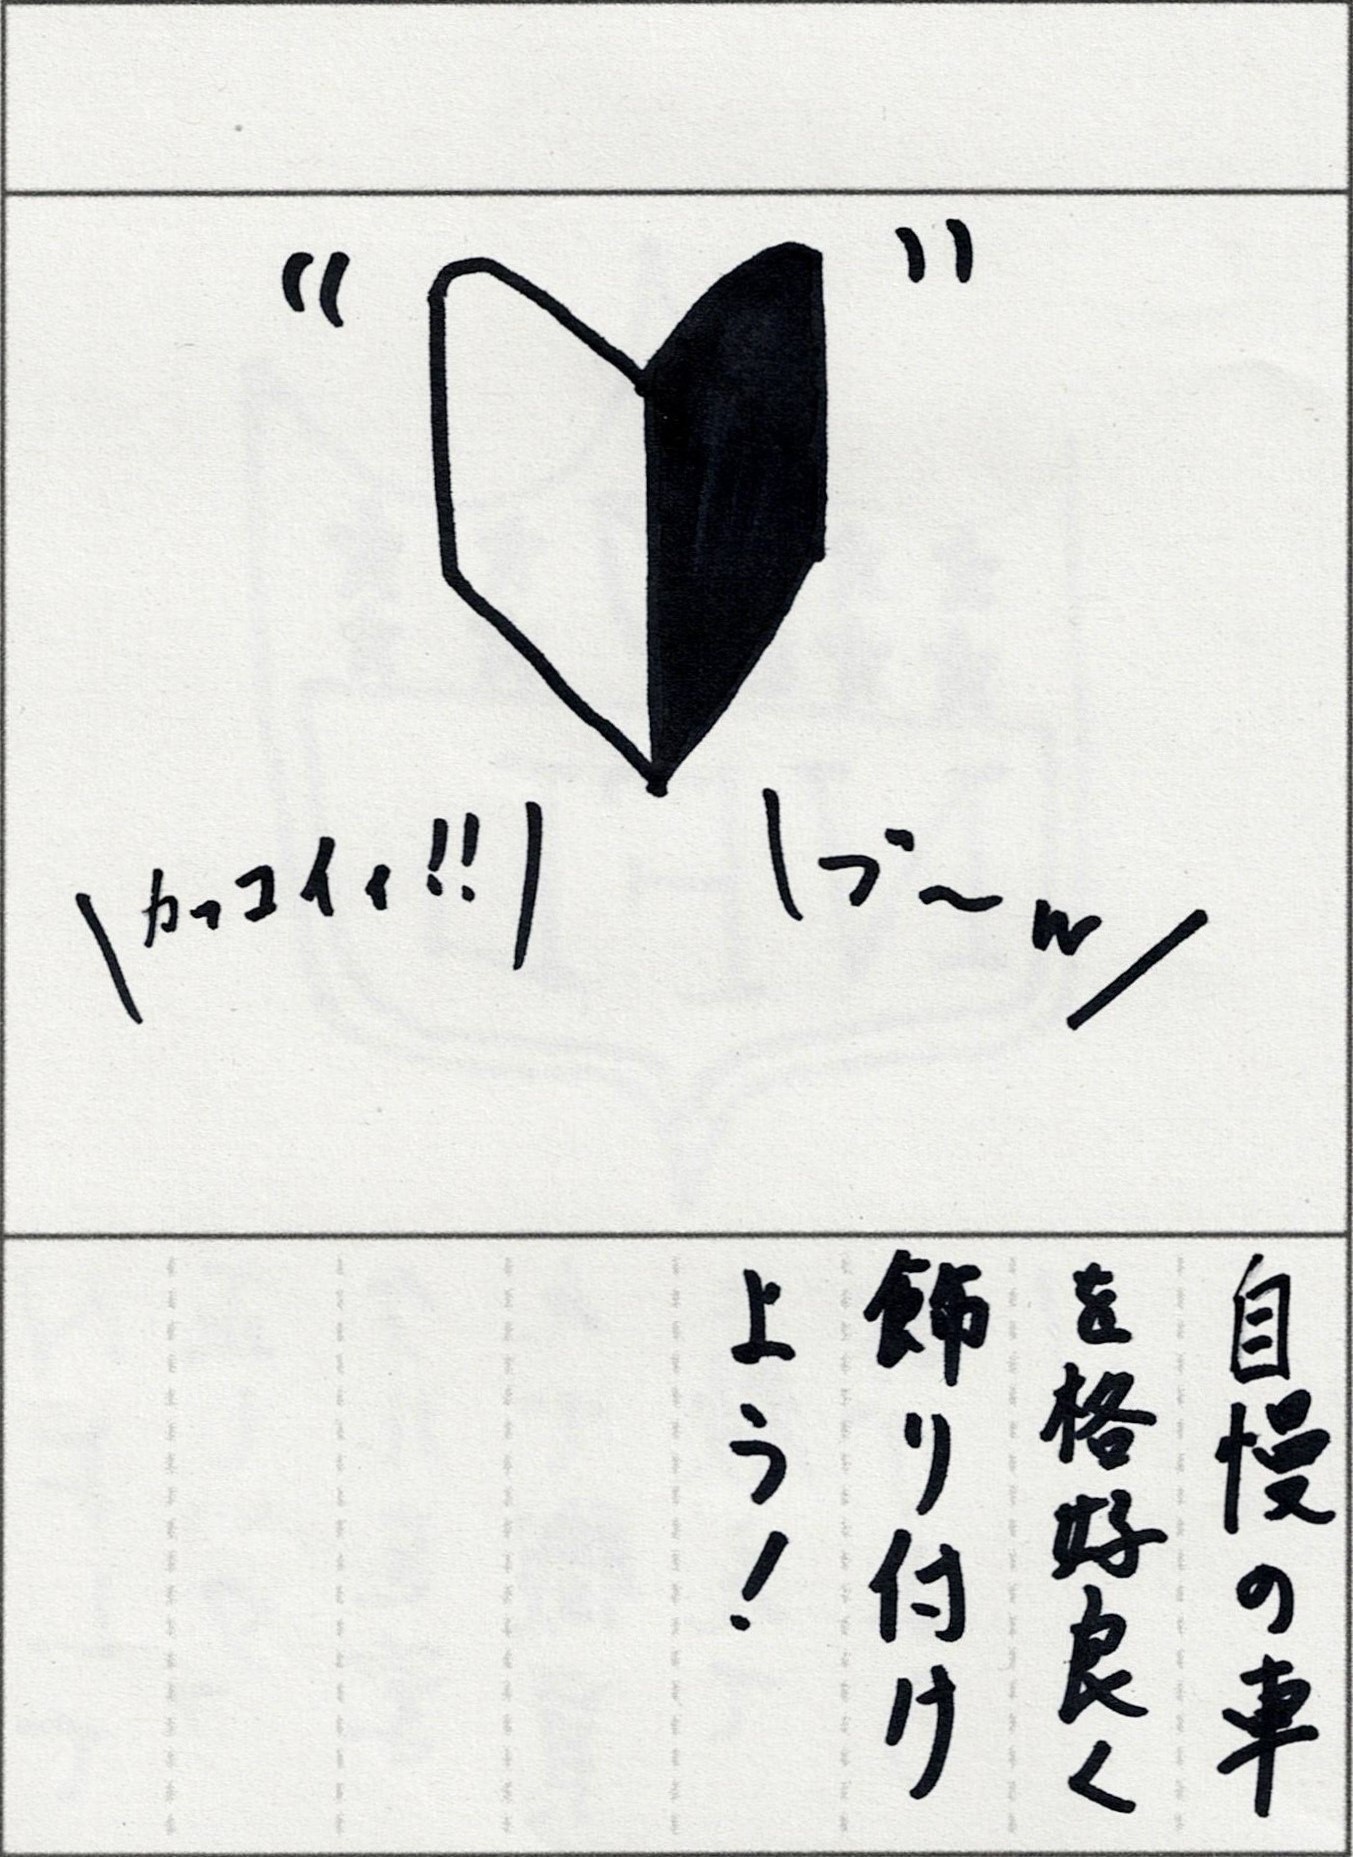 カッコイイ!!
ブ〜w
自慢の車
を格好良く
飾り付け
よう!